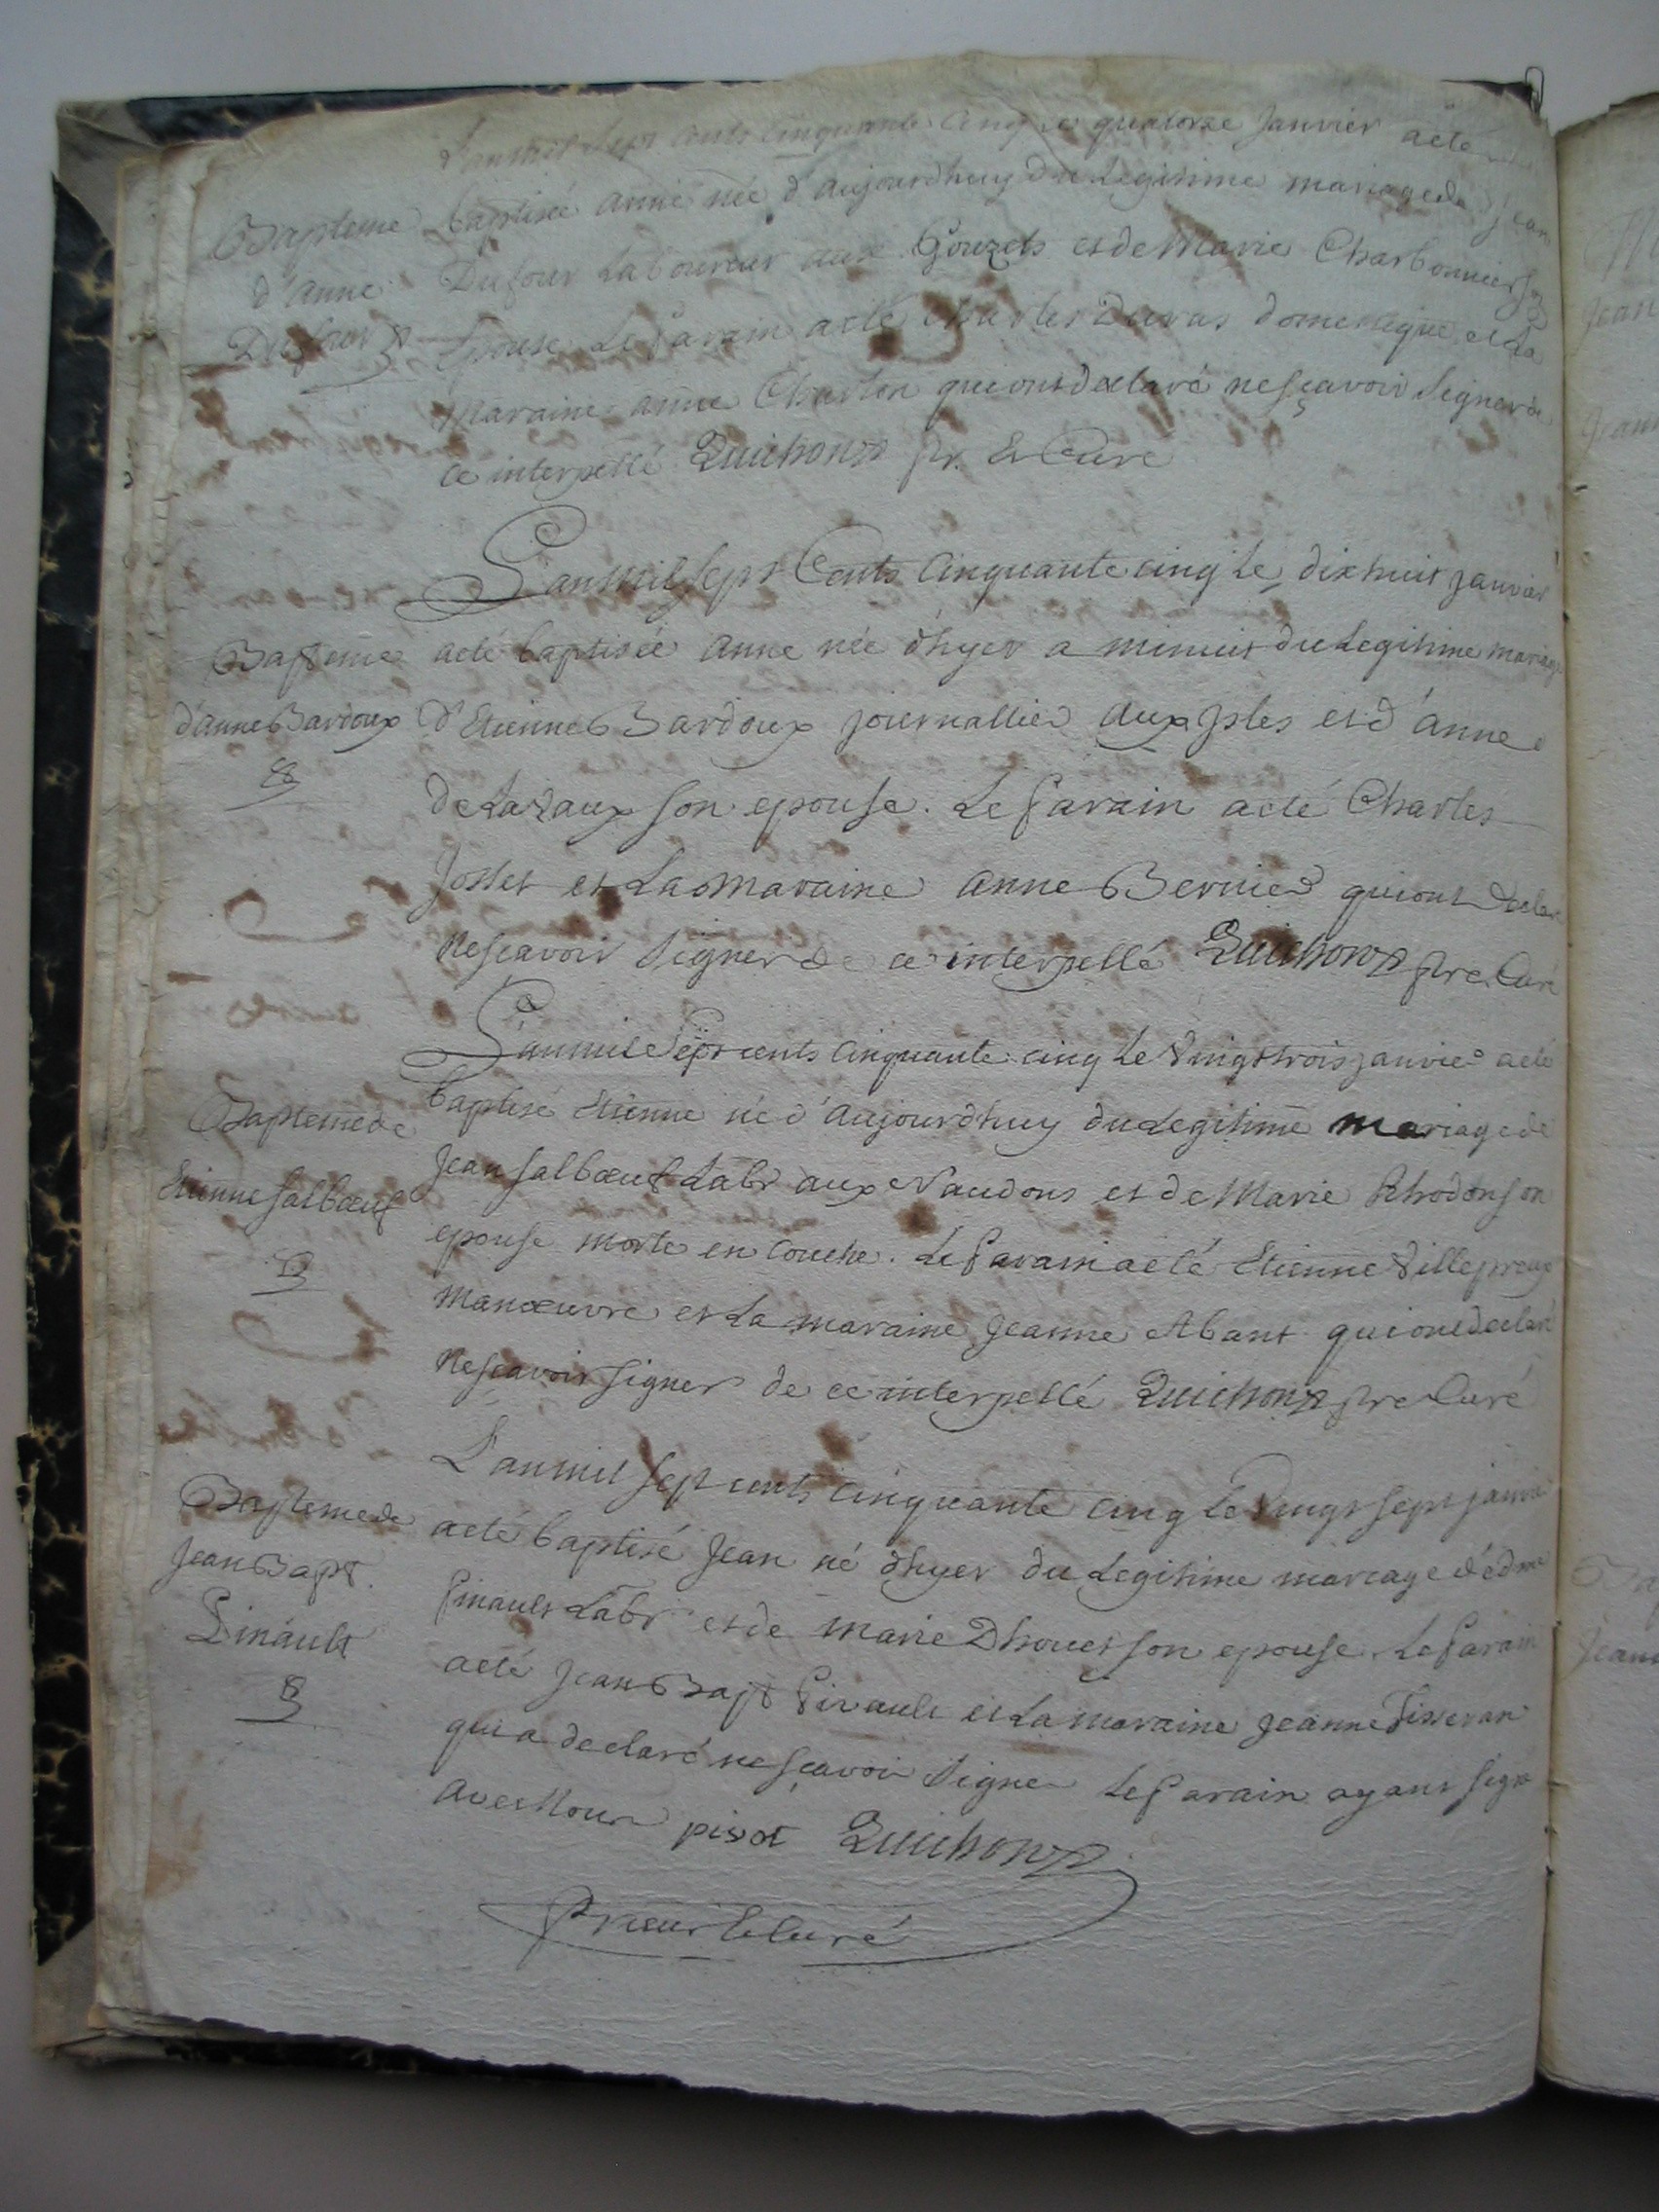 L'an mil sept cents cinquante cinq le quatorze Janvier a eté
Bapteme
d'anne
Dufour
baptisée anne née d'aujourdhuy du Legitime mariage de jean
Dufour Laboureur aux Gouzets et de Marie Charbonnier sa
epouse. Le Parain a eté Charles Duras domestique et La
Maraine anne Charlon qui ont declaré ne sçavoir signer de
ce interpellé Quichon pr. et Curé
L'an mil sept Cents Cinquante cinq Le dix huit janvier
Bapteme
d'anne Bardoux
a eté baptisée anne née d'hyer a minuit du Legitime mariage
d'Etienne Bardoux journallier aux Isles et d'anne
de Lavaux son epouse. Le Parain a eté Charles
Jostet et La Maraine anne Bernier qui ont declaré
ne sçavoir signer de ce interpellé Quichon pre Curé
L'an mil Sept cents Cinquante cinq Le vingt trois janvier a eté
Bapteme de
Etienne salbœuf
baptisé Etienne né d'aujourdhuy du Legitime mariage de
jean salbœuf Labr aux Naudons et de Marie Rhodon son
epouse morte en couche. Le Parain a eté Etienne Villepreux
Manœuvre et La maraine jeanne Abant qui ont declaré
ne sçavoir signer de ce interpellé Quichon pre Curé
L'an mil sept cents cinquante cinq le vingt sept janvier
Bapteme de
jean Bapt.
Pinault
a eté baptisé jean né d'hyer du Legitime mariage d'édme
Pinault Labr et de marie Dhouet son epouse. Le Parain
a eté jean Bapt Pivault et La maraine jeanne Tisseran
qui a declaré ne sçavoir signer Le Parain ayant signé
avec Nous pivot Quichon
Prieur et curé